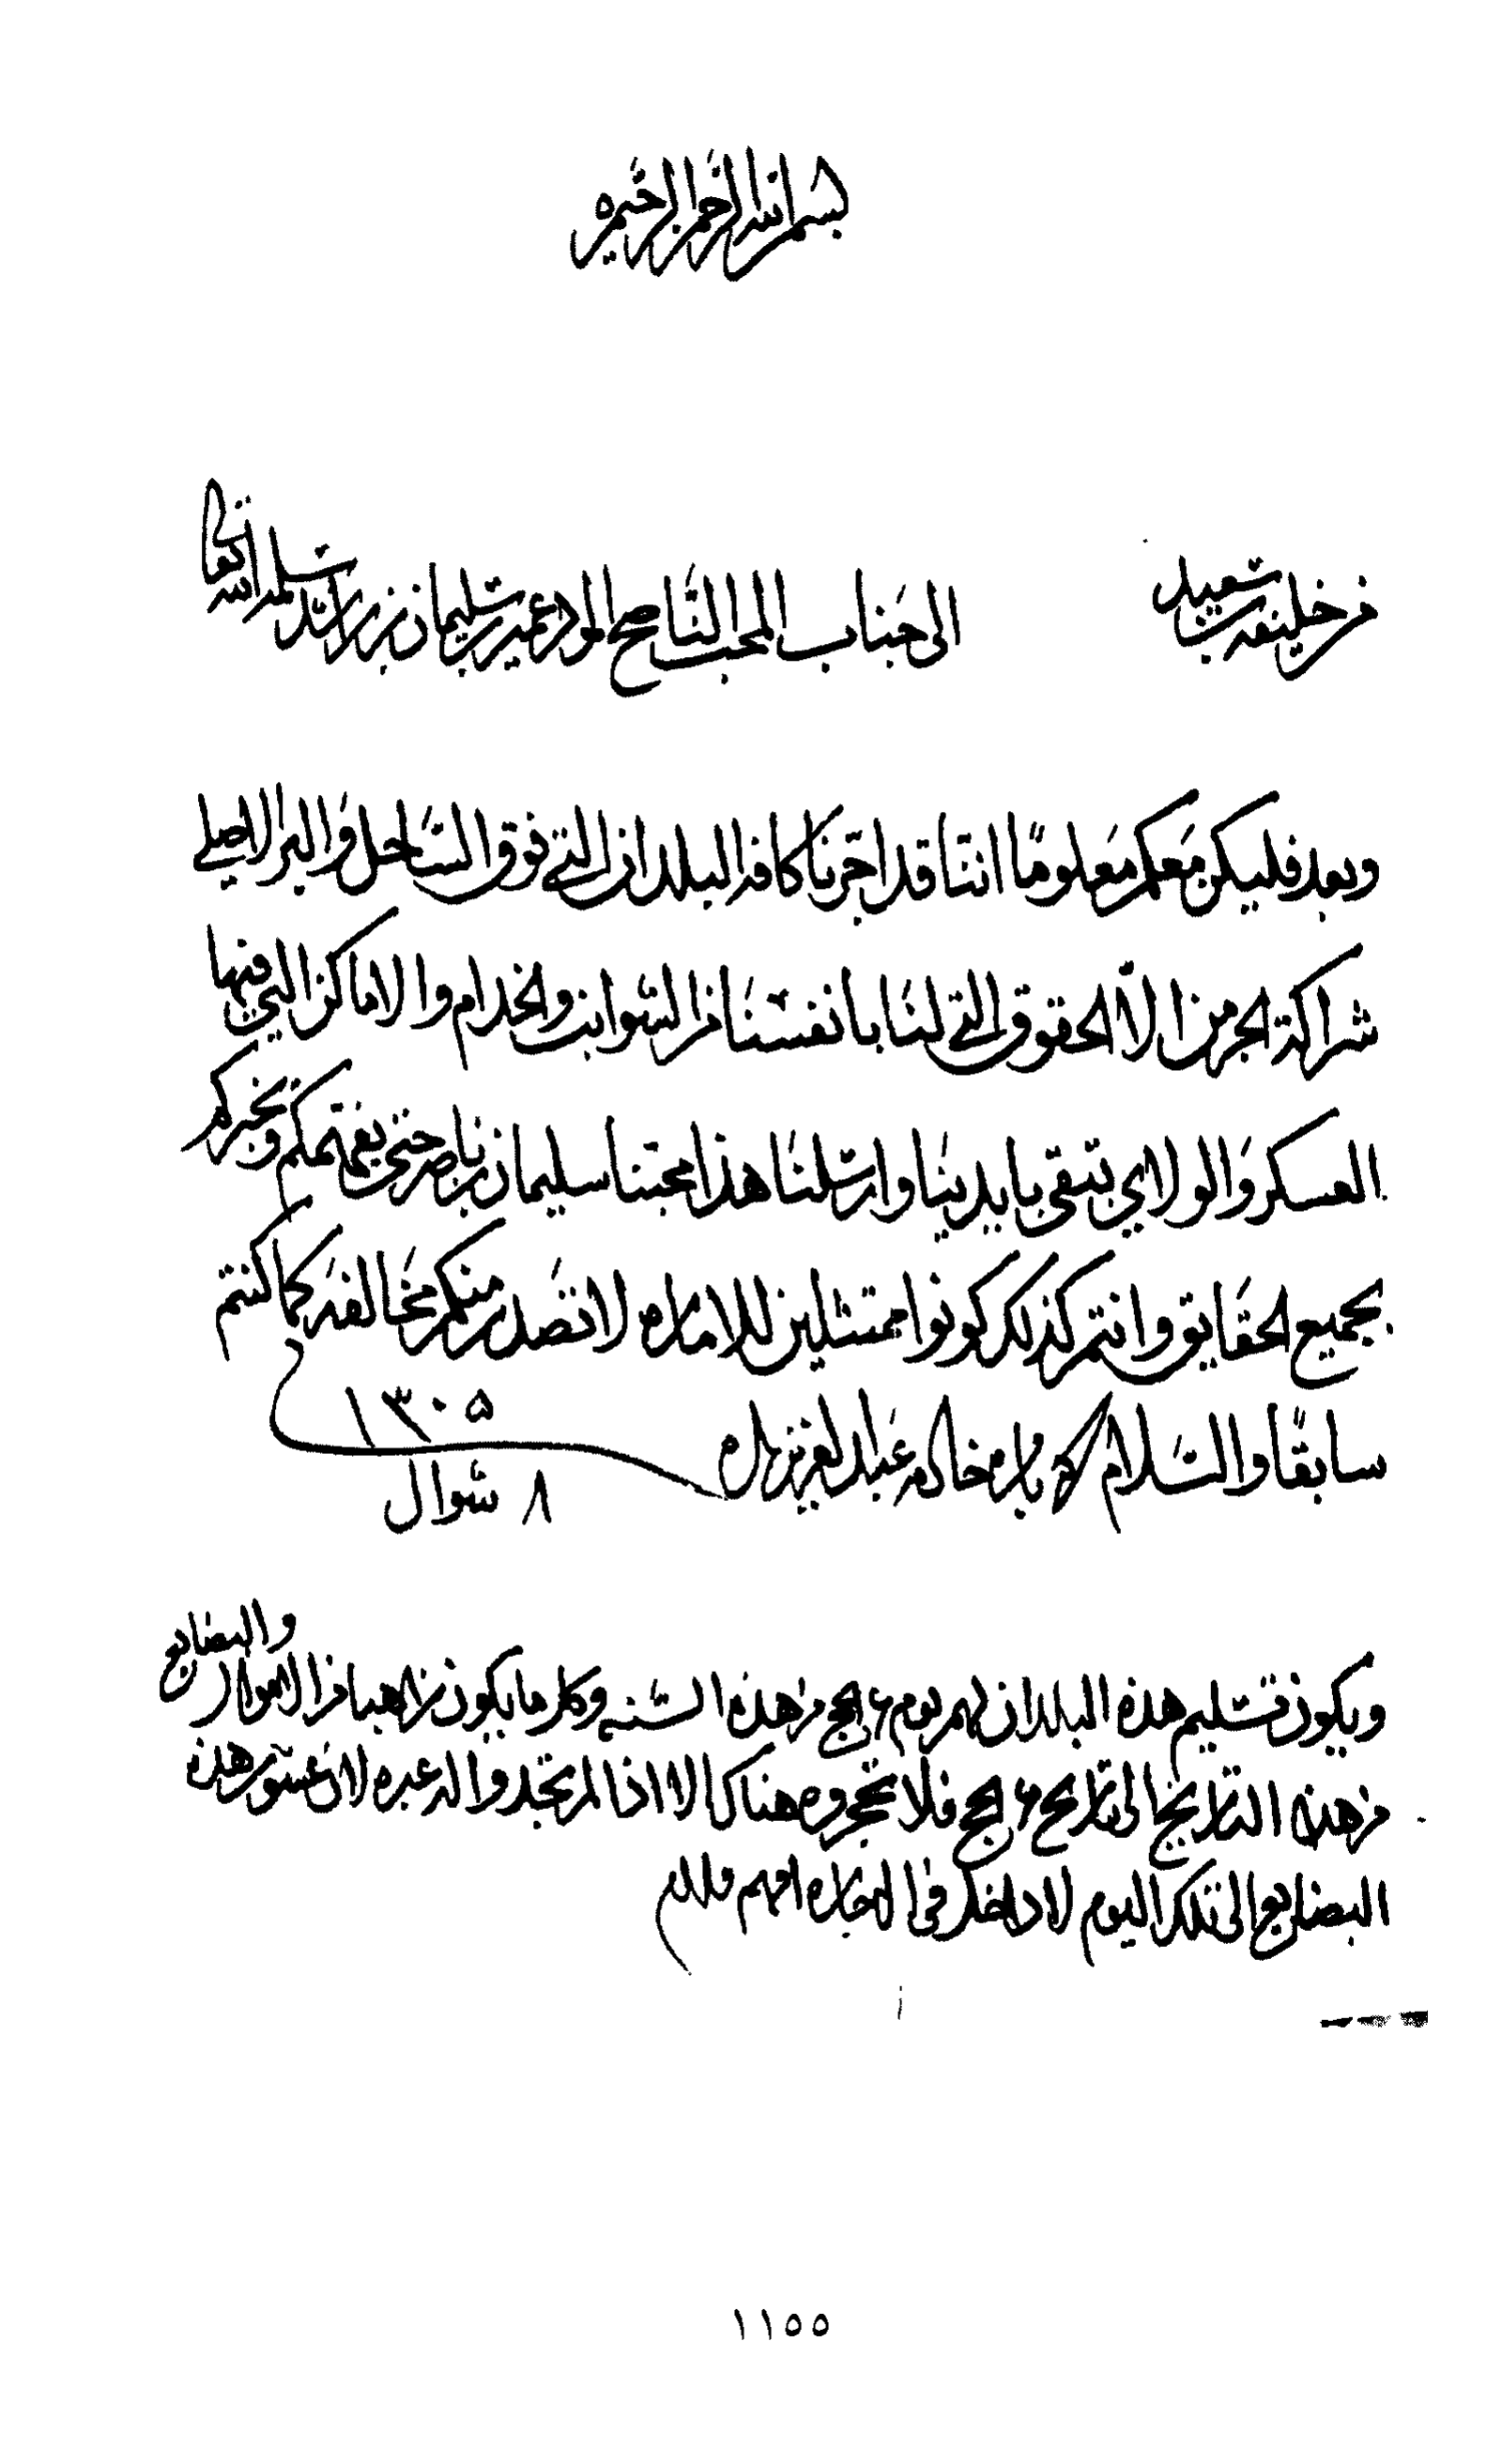 بسم الله الرحمن الرحيم
من خليفة بن سعيد
الى جناب المحب الناصح الود عمير بن سليمان بن راشد سلمه الله تعالى
وبعد فليكن معكم معلومًا اننا قد اجّرنا كافة البلدان التي فوق الساحل في البر الاصلي
شراكة الجرمن الاّ الحقوق التي لنا بانفسنا من الشوانب والخدام والاماكن التي فيها
العسكر والولاي تبقى بايدينا وارسلنا هذا محبنا سليمان بن ناصر حتى يفهمكم ويخبركم
بجميع الحقايق وانتم كذلك كونوا ممتثلين للاماره لا تصدر منكم مخالفه كما كنتم
سابقًا والسلام كتبه بامره خادمه عبد العزيز بيده
١٣٠٥
٨ شوال
ويكون تسليم هذه البلدان لهم يوم ٧ الحج من هذه السنه وكل ما يكون من العبا من الاموال والبضايع
من هذه التاريخ الى تاريخ ٧ الحج فلا تحجروه هناك الا اذا لم تجدوا له عبره لان عشور هذه
البضايع الى تلك اليوم لا داخله في الاجاره افهم
١١٥٥